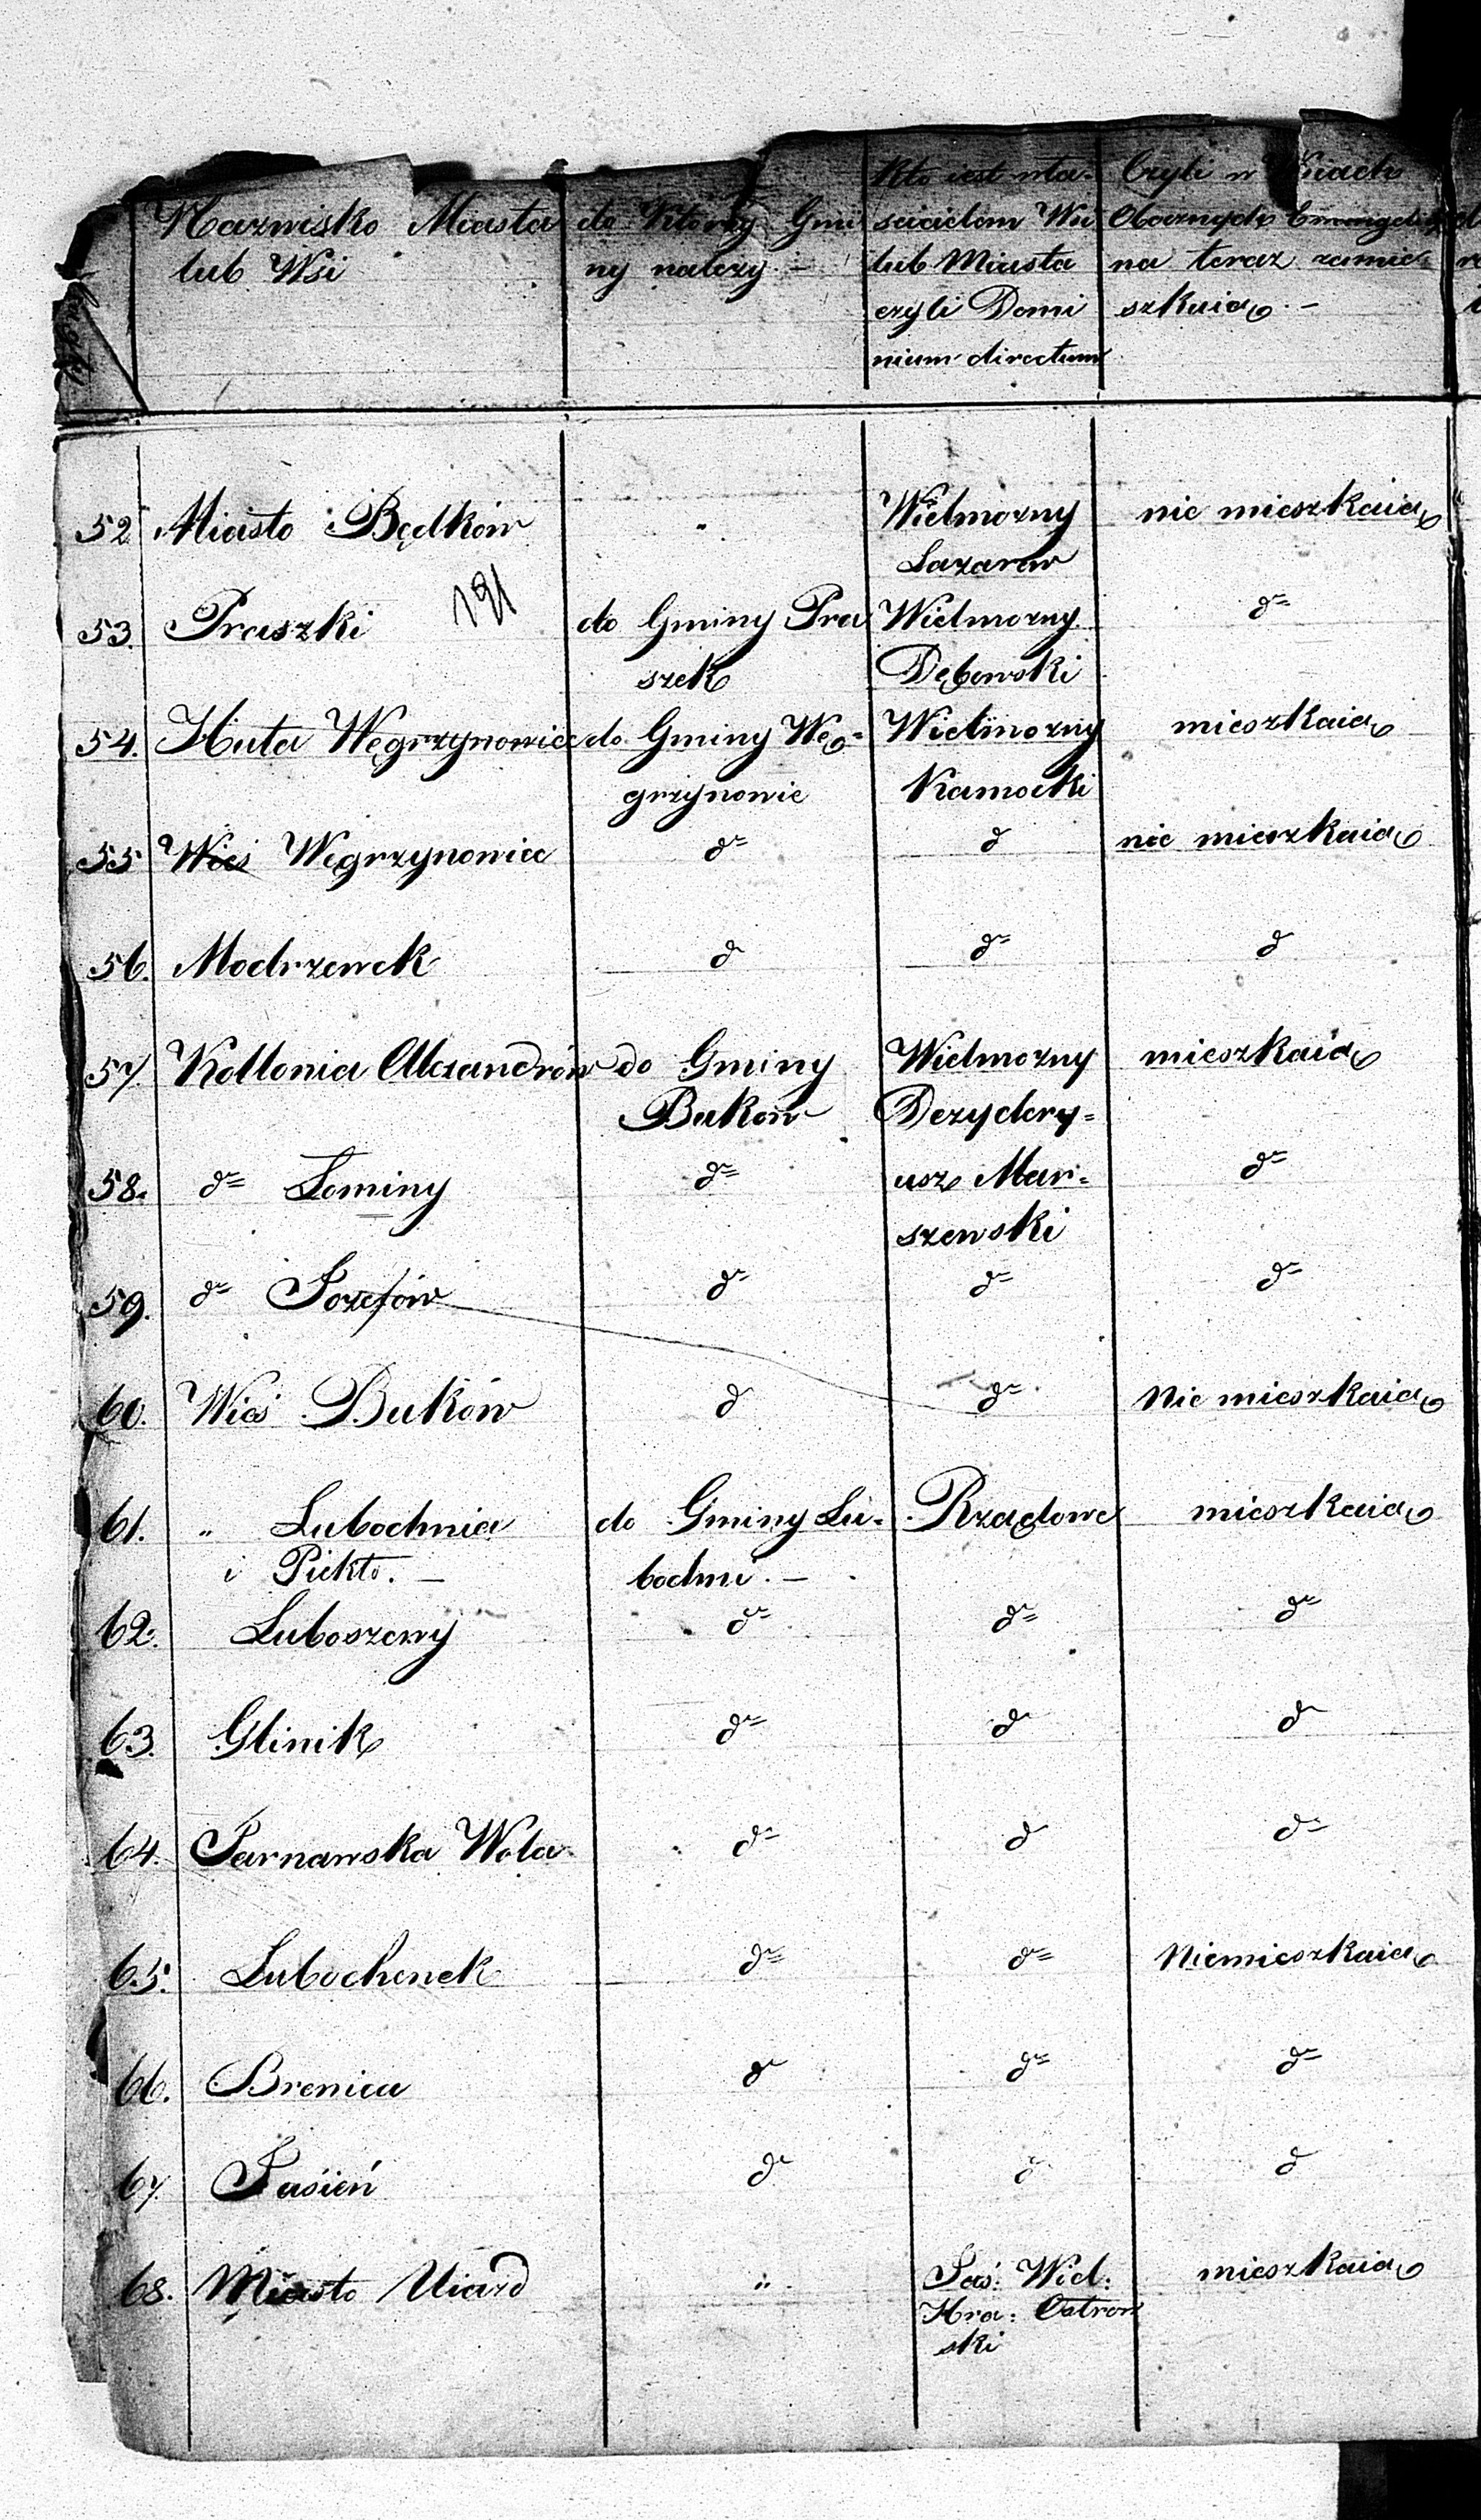 Nazwisko Miasta lub Wsi
do Którey Gminy należy. –
Kto iest włascicielem Wsi lub Miasta czyli Dominium directum
Czyli w Wsiach Obcznych Ewangelicy na teraz zamieszkuią. –
52 Miasto Będków " Wielmożny Lazarew nie mieszkaią
191
53. Praszki do Gminy Praszek Wielmożny Dębowski d=
54. Huta Węgrzynowice do Gminy Węgrzynowic Wielmożny Kamocki mieszkaią
55 Wieś Węgrzynowice d= d nie mieszkaią
56. Modrzewek d d= d
57. Kollonia Alexandrów do Gminy Buków Wielmożny Dezyderyusz Marszewski mieszkaią
58. d= Łominy d= d=
59. d= Jozefów d= d= d=
60. Wieś Buków d d= Nie mieszkaią
61. " Lubochnia i Piekło. – do Gminy Lubochni. – Rządowe mieszkaią
62. Luboszewy d= d= d=
63. Glinik d= d d
64. Tarnawska Wola d= d d=
65. Lubochenek d= d= Niemieszkaią
66. Brenica d d= d=
67. Jasień d d d
68. Miasto Uiazd " Jaś: Wiel: Hra: Ostrowski mieszkaią